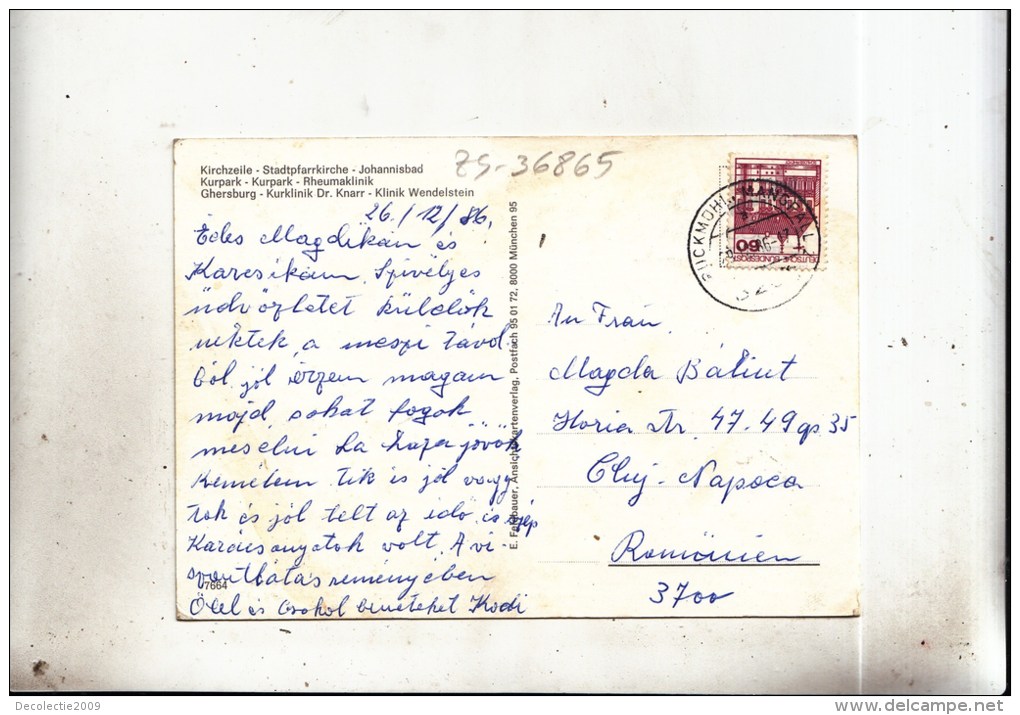 Kirchzeile - Stadtpfarrkirche - Johannisbad
Kurpark - Kurpark - Rheumaklinik
Ghersburg - Kurklinik Dr. Knarr - Klinik Wendelstein
ZS-36865
26./12/86.
Édes Magdikám és
Karcsikám. Szívélyes
üdvözletet küldök
nektek, a messzi távol
ból jól érzem magam
majd sokat fogok
meselni ha haza jövök
Remélem tik is jól vagy
tok és jól telt az idö, és szép
Karácsonyatok volt. A vi-
szontlátás reményében
Ölel és csokol benneteket Kodi
7664
E. Fahlbauer, Ansichtskartenverlag, Postfach 95 01 72, 8000 München 95
BRUCKMÜHL, MANGFALL
DEUTSCHE BUNDESPOST
60
An Frau.
Magda Bálint
Horia Str. 47-49 ap 35
Cluj-Napoca
Romänien
3700
Decolectie2009
delcampe.net